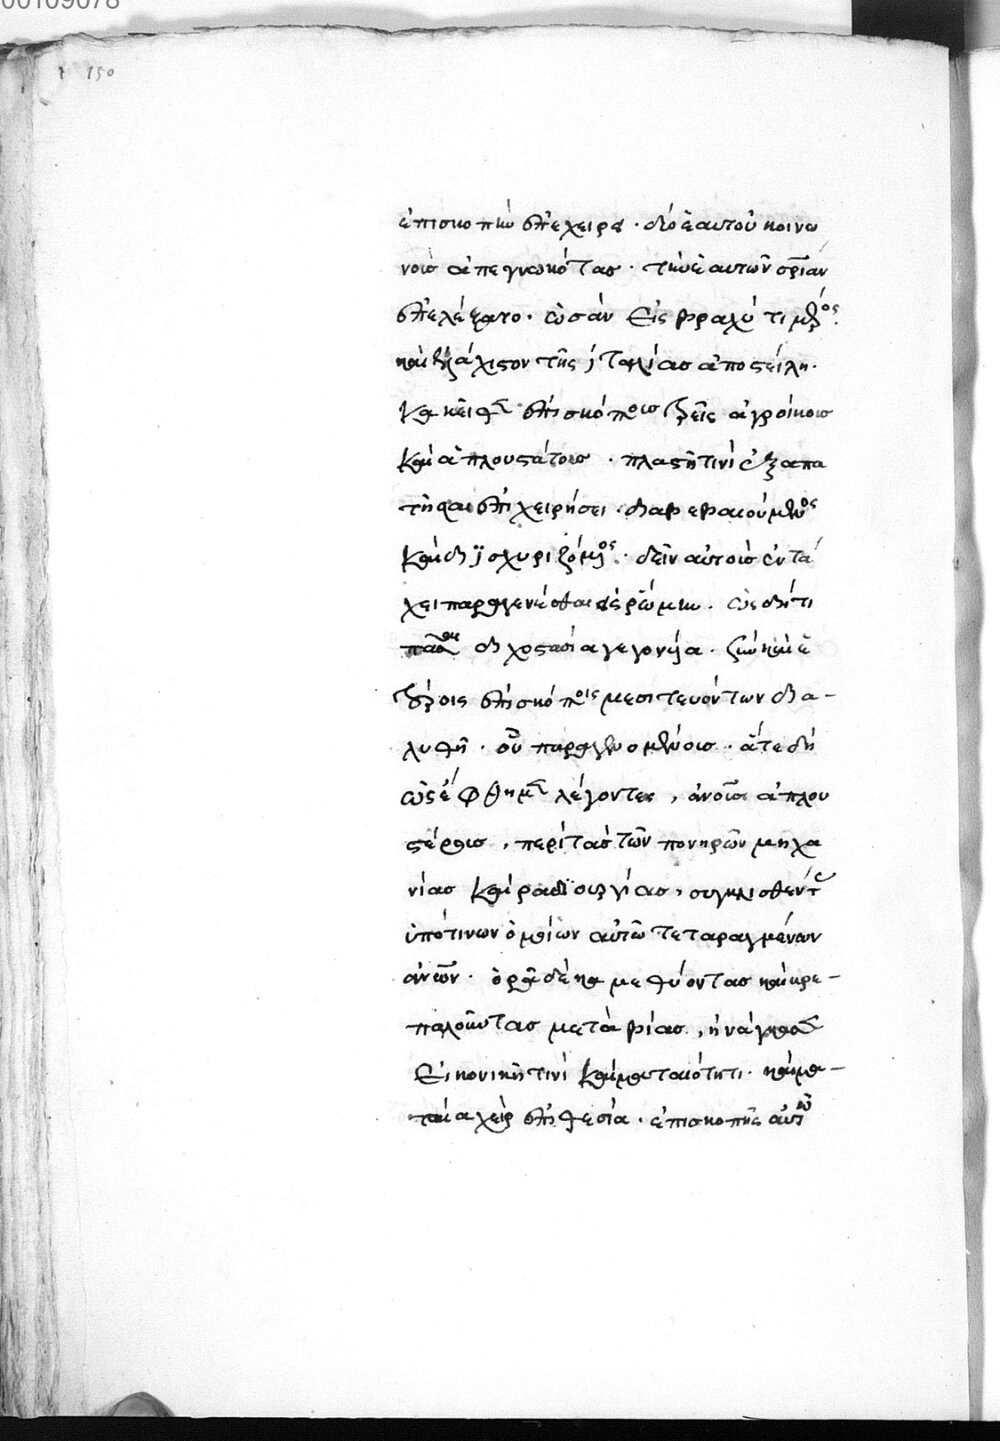 00109078
150
ἐπισκοπὴν ἐπεχείρει · δύο ἑαυτοῦ κοινω
νοὺς ἀπεγνωκότας · τῆς ἑαυτῶν σρίαν
ἐπελέξατο · ὡς ἂν εἰς βραχύ τι μέρος
καὶ ἐλάχιστον τῆς ἰταλίας ἀποστείλη ·
κἀκεῖθεν ἐπισκόπους τρεῖς ἀγροίκους
καὶ ἁπλουστάτους · πλαστῆ τινὶ ἐξαπα
τῆσαι ἐπιχειρήσει · διαβεβαιούμενος
καὶ διϊσχυριζόμενος · δεῖν αὐτοὺς ἐν τά
χει παραγενέσθαι εἰς ῥώμην · ὡς δή τι
πᾶσα διχοστασία γεγονυῖα · σὺν καὶ ἑ
τέροις ἐπισκόποις μεσιτευόντων δια–
λυθῆ · οὓς παραγενομένους · ἅτε δὴ
ὡς ἔφθημεν λέγοντες, ἀνους ἁπλου
στέρους, περὶ τὰς τῶν πονηρῶν μηχα
νίας καὶ ραδϊουργίας, συγκλισθέντας
ὑπό τινων ὁμοίων αὐτῶ τεταραγμένων
ἀνων · ὥρα δεκάτη μεθύοντας καὶ κρε–
παλοῦντας μετὰ βίας, ἠνάγκασεν
εἰκονικῆ τινὶ καὶ ματαιότητι · καὶ μα–
ταία χειρεπιθεσία · ἐπισκοπῆς αὐτῶ